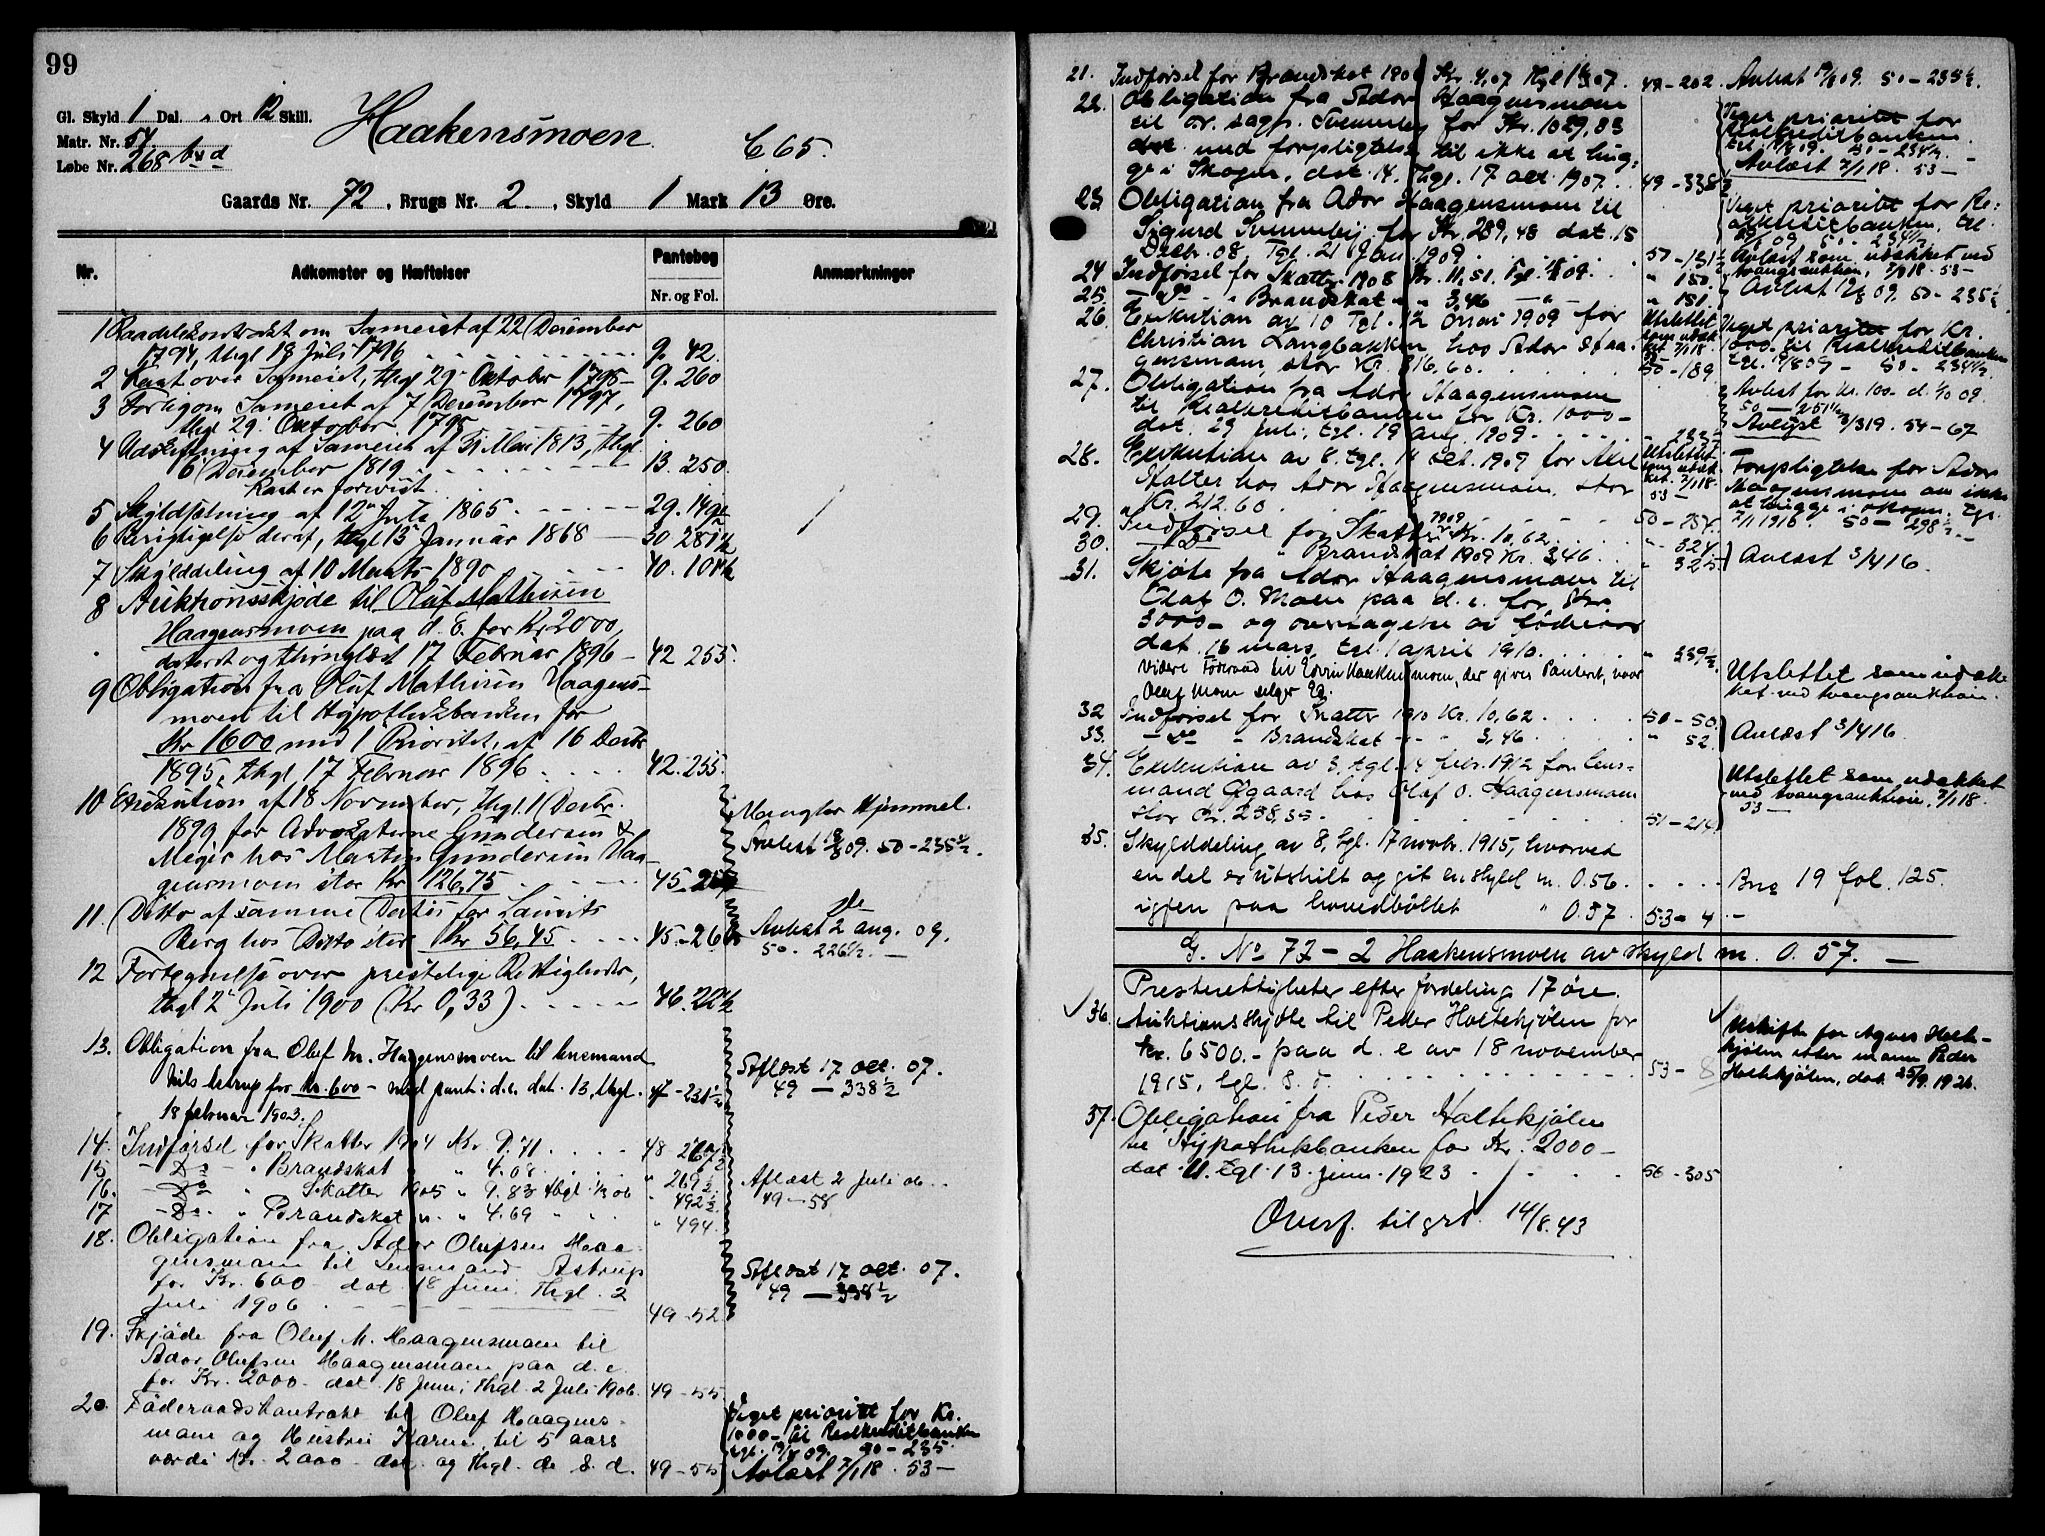 99
Gl. Skyld 1 Dal. „ Ort 12 Skill.
Matr. Nr. 54.
Løbe Nr. 268 b v d
Haakensmoen.
C 65.
Gaards Nr. 72, Brugs Nr. 2., Skyld 1 Mark 13 Øre.
Nr. Adkomster og Hæftelser Pantebog Anmærkninger
Nr. og Fol.
1 Raadelskontrakt om Sameiet af 22 December
1794, thgl 18 Juli 1796 9. 42.
2 Kart over Sameiet, thgl 29 Oktober 1798 9. 260
3 Forlig om Sameiet af 7 December 1797,
thgl 29. Oktober 1798 9. 260
4 Udskiftning af Sameiet af Mai 1813, thgl
6 December 1819 13. 250.
Kart er forevist.
5 Skyldsætning af 12 Juli 1865 29. 149
6 Berigtigelse deraf, thgl 15 Januar 1868 30. 281½
7 Skylddeling af 10 Marts 1890 40. 108½
8 Auktionsskjøde til Oluf Mathisen
Haagensmoen paa d. E. for Kr 2000,
dateret og thinglæst 17 Februar 1896 42 255.
9 Obligation fra Oluf Mathisen Haagens-
moen til Hypothekbanken for
Kr 1600 med 1 Prioritet, af 16 Decbr
1895, thgl 17 Februar 1896 42. 255.
10 Exekution af 18 November, thgl 11 Decbr. Mangler Hjemmel.
1899 for Advokaterne Gundersen &
Meyer hos Martin Gundersen Haa- Avlæst 19/8 09. 50-235½.
gensmoen stor Kr 126,75 45-257
11. Ditto af samme Datis for Laurits
Berg hos Ditto stor Kr 56,45 45-266 Avlæst 2 aug. 09.
50. 226½. —
12 Fortegnelse over prestelige Rettigheder,
thgl 2 Juli 1900 (Kr 0,33) 46. 22½
13. Obligation fra Oluf M. Haagensmoen til lensmand Aflæst 17 oct. 07.
Nils Astrup for kr. 600 - med pant i d.e. dat. 13, thgl. 47-231½ 49 — 338½
18 februar 1903.
14. Indførsel for Skatter 1904 Kr. 9.71 48 267½
15 - Do - " Brandskat " " 4.08 " 269½ Aflæst 2 Juli 06.
16. - Do " Skatter 1905 " 9.83 thgl 06 " 492½ 49-58
17 - Do. " Brandskat " " 4.69 " 494.
18. Obligation fra Ador Olufsen Haa-
gensmoen til Lensmand Astrup Aflæst 17 oct. 07.
for Kr. 600 - dat. 18 Juni, Thgl. 2 49 — 338½
Juli 1906 49-52
19. Skjøde fra Oluf M. Haagensmoen til
Ador Olufsen Haagensmoen paa d. e.
for Kr. 2000 - dat. 18 Juni, thgl. 2 Juli 1906. 49-55
20. Føderaadskontrakt til Oluf Haagens- Veget prioritet for Kr.
moen og Hustru Karen til 5 aars 1000- til Realkreditbanken
værdi Kr. 2000 - dat. og thgl. de s. d. 49-55 tgl. 19/8 09. 50-235.
Avlæst 7/1 18. 53—
21. Indførsel for Brandskat 190 Kr. 4,07 Thgl 07. 49-202. Avlæst 19/8 09. 50-235½.
22. Obligation fra Ador Haagensmoen Veget prioritet for
til or. sagf. Svenneby for Kr. 1029,83 Realkreditbanken
med forpligtelse til ikke at hug- tgl. 19/8 09. 50-234½.
ge i Skogen, dat. 14. Thgl. 17 oct. 1907. 49-338½ Avlæst 7/1 18. 53—
23 Obligation fra Ador Haagensmoen til Veget prioritet for Re-
Sigurd Svenneby for Kr. 289,48 dat. 15 alkreditbanken, tgl.
Decbr. 08, Tgl. 21 Jan. 1909. 50-131½ 19/8 09 50-234½
24 Indførsel for Skatter 1908 Kr. 11.51. Tgl. 09. " 150. Avlæst som udækket ved tvangsauktion, 7/1 18. 53—
25. - Do - " Brandskat " " 3,46 " 151. Avlæst 19/8 09. 50-235½
26. Exekution av 10 Tgl. 12 mai 1909 for Utslettet Veget prioritet for Kr.
Christian Langbakken hos Ador Haa- som udæk- 1000 til Realkreditbanken
gensmoen, stor Kr. 816,60. ket. 7/1 18 50-189 tgl. 19/8 09 - 50-234½.
27. Obligation fra Ador Haagensmoen Avlæst for Kr. 100. d. 09.
til Realkreditbanken for Kr. 1000 - 50 — 251½
dat. 29 Juli, tgl. 19 aug. 1909. Avlyst 3/3 19. 54-67
28. Exekution av 8, tgl. 14 oct. 1909 for Axel Utslettet Forpligtelse for Ador
Holter hos Ador Haagensmoen, stor 7/1 18. Haagensmoen om ikke
Kr. 212.60. 53— at hugge i skogen. Tgl.
29. Indførsel for Skatter 1909 Kr. 10,62. " 324 7/1 1916. 50-298½
30. - Do - " Brandskat 1909 Kr. 3,46. " 325 Avlæst 3/4 16.
31. Skjøte fra Ador Haagensmoen til
Olaf O. Moen paa d. e. for Kr.
3000 - og overtagelse av føderaad
dat. 16 mars, tgl. 1 april 1910. " 359½
Videre Føderaad til Edvin Haakensmoen, der gives Panteret, naar Utslettet som udæk-
Oluf Moen selger Eg. ket ved tvangsauktion.
32 Indførsel for Skatter 1910 Kr. 10,62. 50-50 Avlæst 3/4 16.
33. - Do - " Brandskat " 3,46. " 52.
34. Exekution av 3, tgl. 14 febr. 1912 for lens- Utslettet som udækket
mand Øgaard hos Olaf O. Haagensmoen ved tvangsauktion, 7/1 18.
stor Kr. 238,35. 51-214 53—
35. Skylddeling av 8, tgl. 17 novbr. 1915, hvorved
en del er utskilt og git en skyld m. 0.56. Bne 19 fol. 125.
igjen paa hovedbøllet " 0.57. 53-4.-
G. No 72 - 2 Haakensmoen av skyld m. 0. 57. —
Presterettigheter efter fordeling 17 øre.
36. Auktionsskjøte til Peder Holtekjølen for Uskifte for Agnes Holte-
kr. 6500.- paa d. e av 18 november kjølen etter mann Peder
1915, tgl. s. d. 53-8 Holtekjølen, dat. 25/9. 1926.
37. Obligation fra Peder Holtekjølen
til Hypothekbanken for Kr. 2000 -
dat. 11. tgl. 13. juni 1923 56-305
Overf. til grd. 14/8. 43